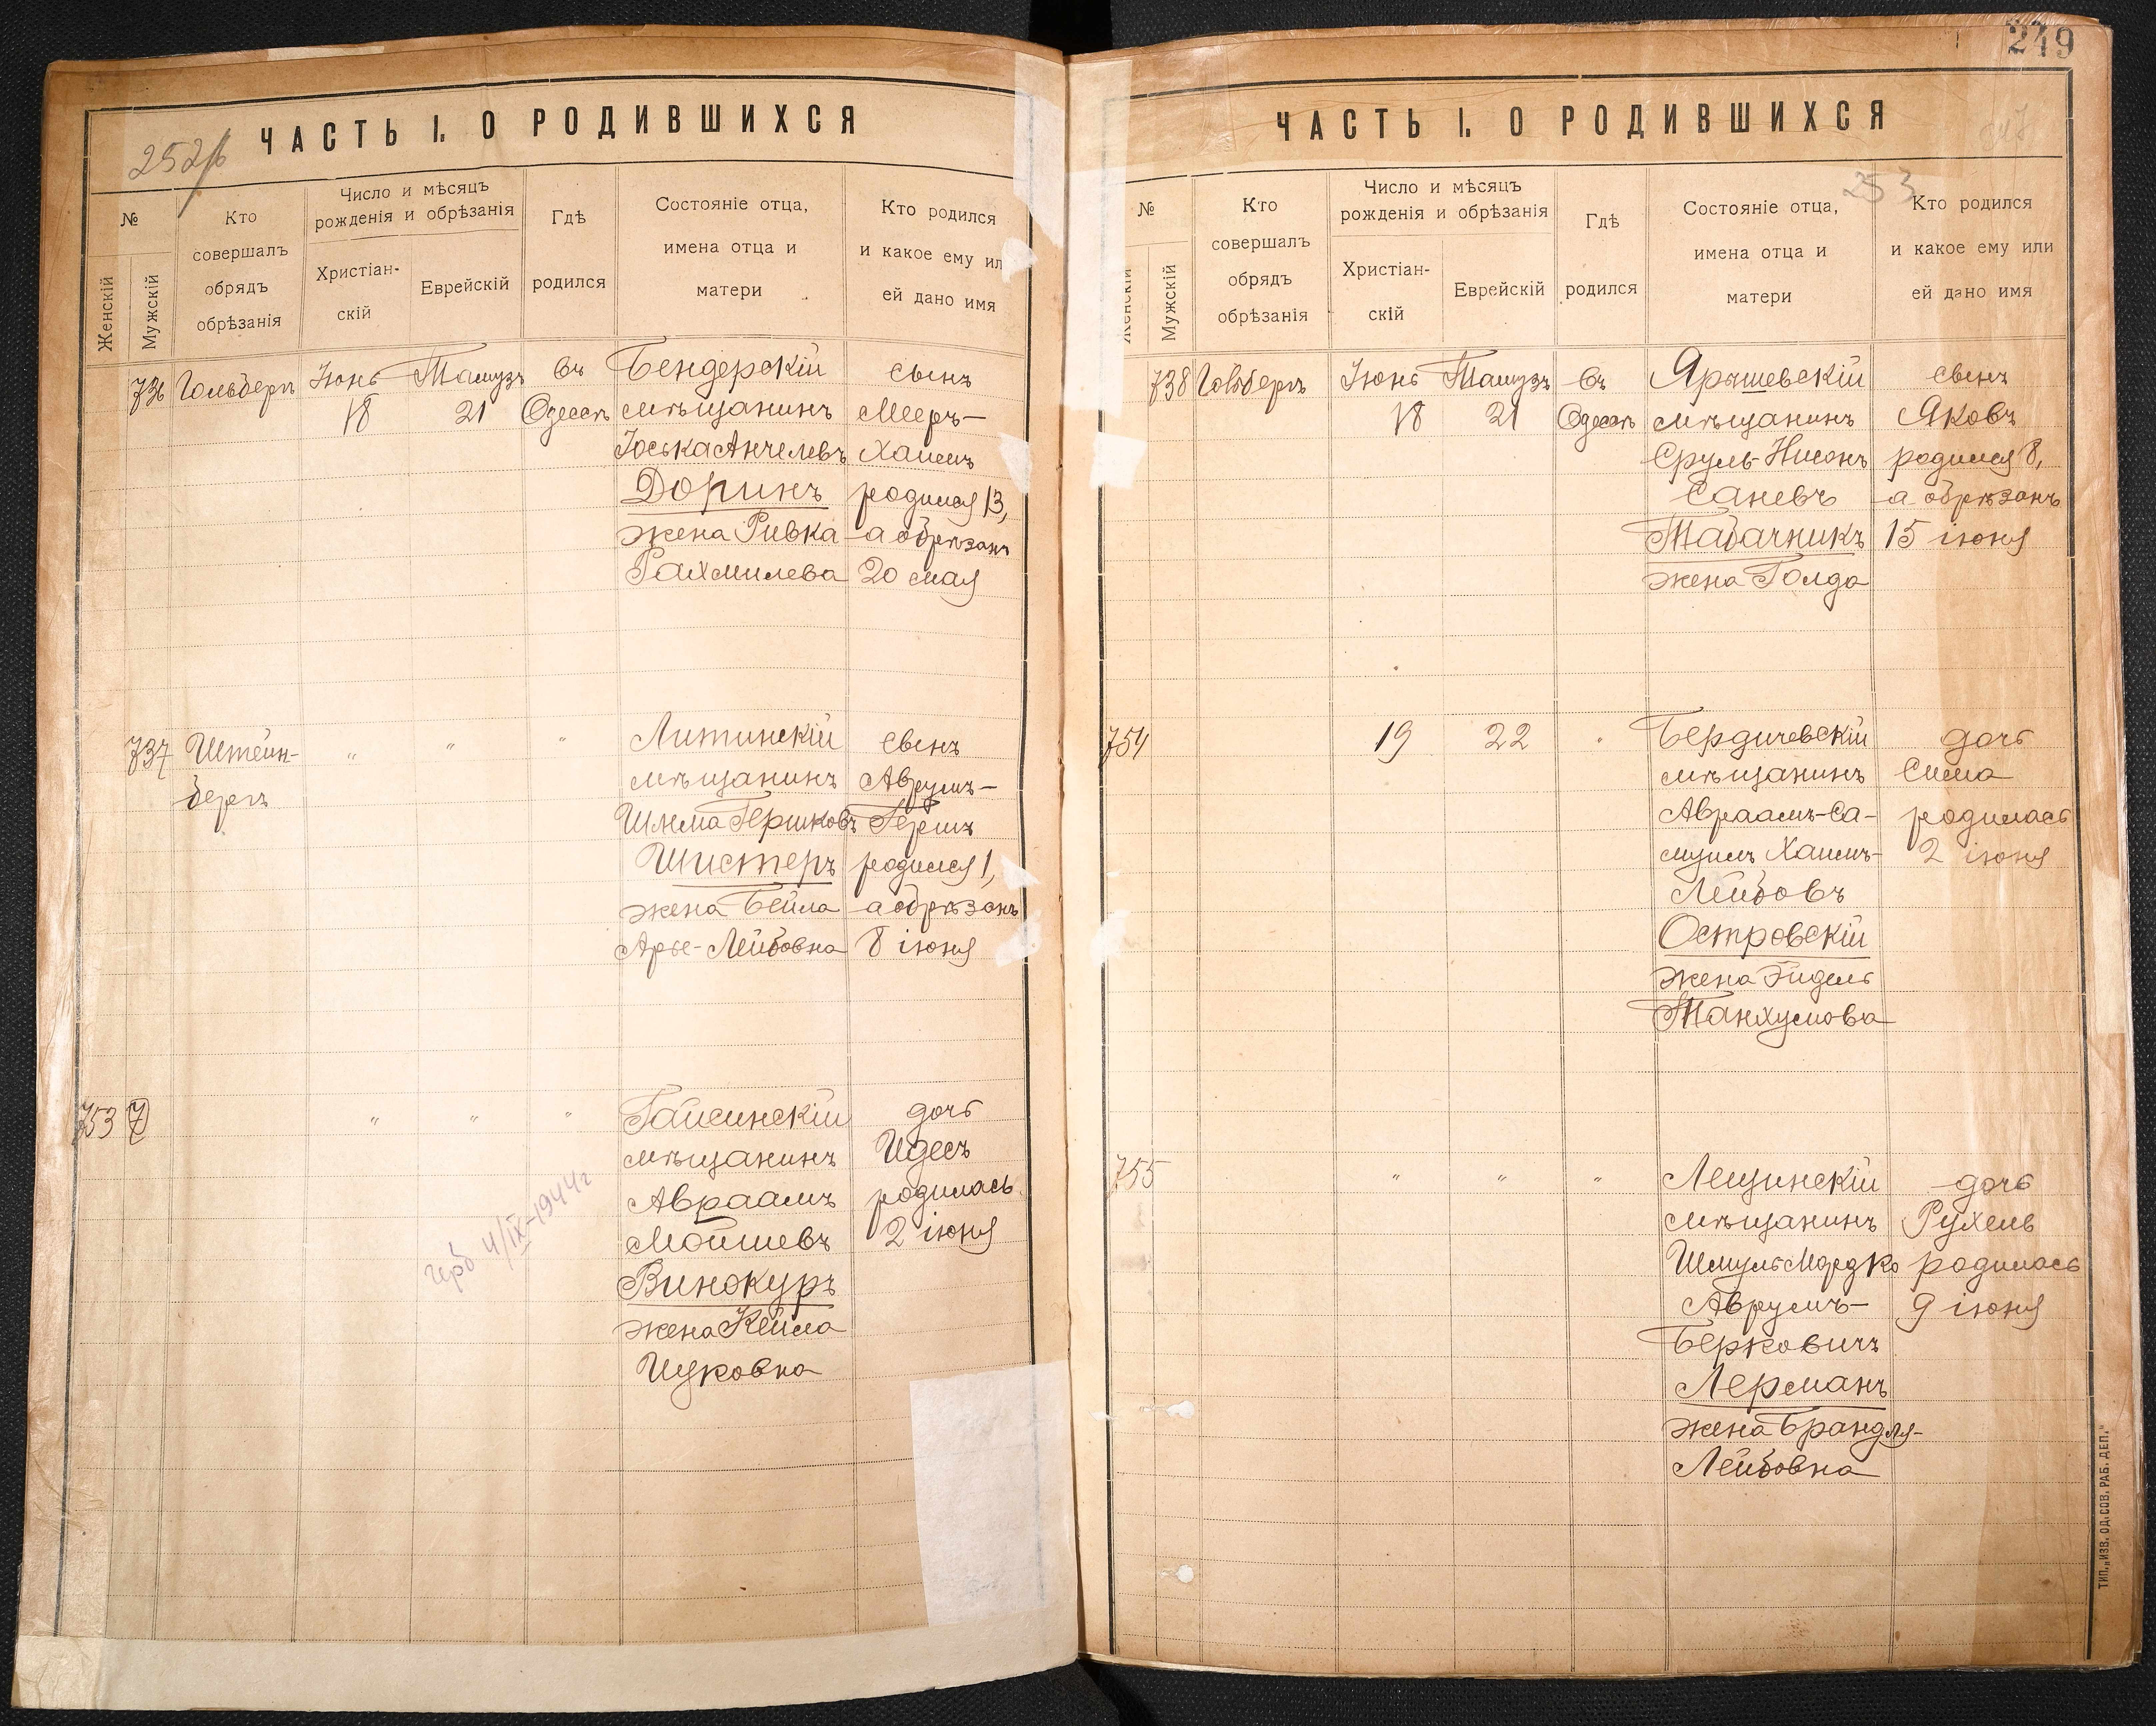 249
ЧАСТЬ I. О РОДИВШИХСЯ
№
Женскій
Мужскій
Кто
совершалъ
обрядъ
обрѣзанія
Число и мѣсяцъ
рожденія и обрѣзанія
Христіан-
скій
Еврейскій
Гдѣ
родился
Состояніе отца,
имена отца и
матери
Кто родился
и какое ему ил
ей дано имя
736
Гольдберг
Іюнь
18
Тамузъ
21
въ
Одессѣ
Бендерскій
мѣщанинъ
Іоська Анчелевъ
Доринъ
жена Ривка
Рахмилева
сынъ
Мееръ-
Хаимъ
родился 13,
а обрѣзанъ
20 мая
737
Штейн-
бергъ
"
"
"
Литинскій
мѣщанинъ
Шлема Гершковъ
Шистеръ
жена Бейла
Арье-Лейбовна
сынъ
Аврумъ-
Гершъ
родился 1,
а обрѣзанъ
8 іюня
753
"
"
"
Гайсинскій
мѣщанинъ
Авраамъ
Мойшевъ
Винокуръ
жена Кейла
Ицковна
дочь
Идесъ
родилась
2 іюня
4/IX-1944г
ЧАСТЬ I. О РОДИВШИХСЯ
253
№
Женскій
Мужскій
Кто
совершалъ
обрядъ
обрѣзанія
Число и мѣсяцъ
рожденія и обрѣзанія
Христіан-
скій
Еврейскій
Гдѣ
родился
Состояніе отца,
имена отца и
матери
Кто родился
и какое ему или
ей дано имя
738
Іюнь
18
Тамузъ
21
въ
Одессѣ
Ярышевскій
мѣщанинъ
Сруль-Нисонъ
Саневъ
Табачникъ
жена Голда
сынъ
Яковъ
родился 8,
а обрѣзанъ
15 іюня
754
19
22
"
Бердичевскій
мѣщанинъ
Авраамъ-Са-
муилъ Хаимъ-
Лейбовъ
Островскій
жена Эйдель
Танхумова
дочь
Сима
родилась
2 іюня
755
"
"
"
Лещинскій
мѣщанинъ
Шмуль Мордко
Аврумъ-
Берковичъ
Лерманъ
жена Брандля-
Лейбовна
дочь
Рухель
родилась
9 іюня
ТИП. „ИЗВ. ОД. СОВ. РАБ. ДЕП."